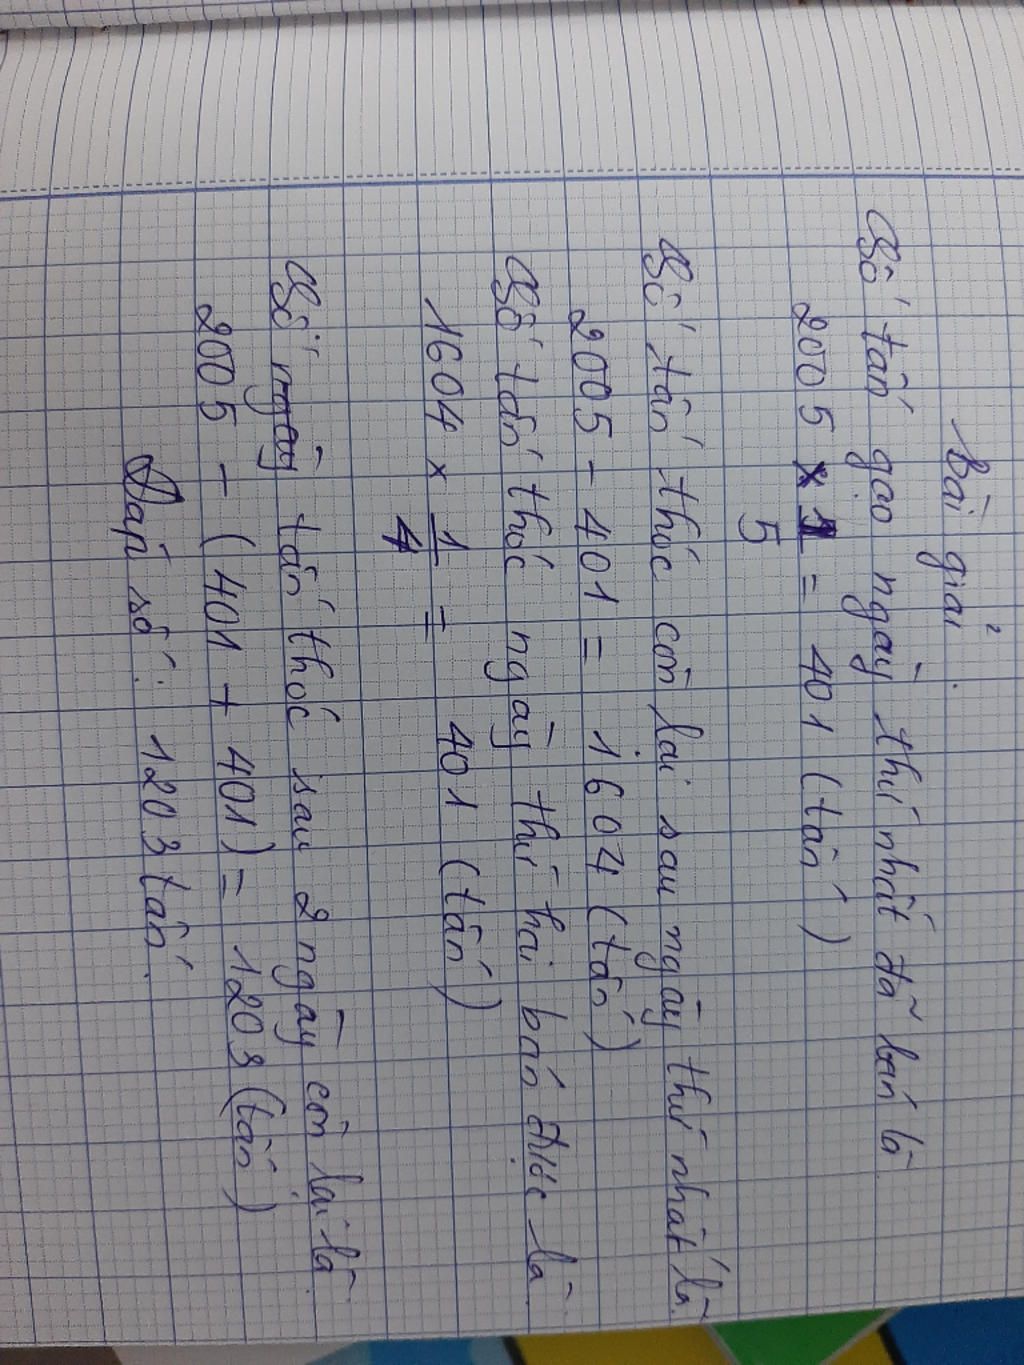 Bài giải.
Số tấn gạo ngày thứ nhất đã bán là
2005 x 1/5 = 401 (tấn)
Số tấn thóc còn lại sau ngày thứ nhất là
2005 - 401 = 1604 (tấn)
Số tấn thóc ngày thứ hai bán được là
1604 x 1/4 = 401 (tấn)
Số ngày tấn thóc sau 2 ngày còn lại là
2005 - (401 + 401) = 1203 (tấn)
Đáp số: 1203 tấn.